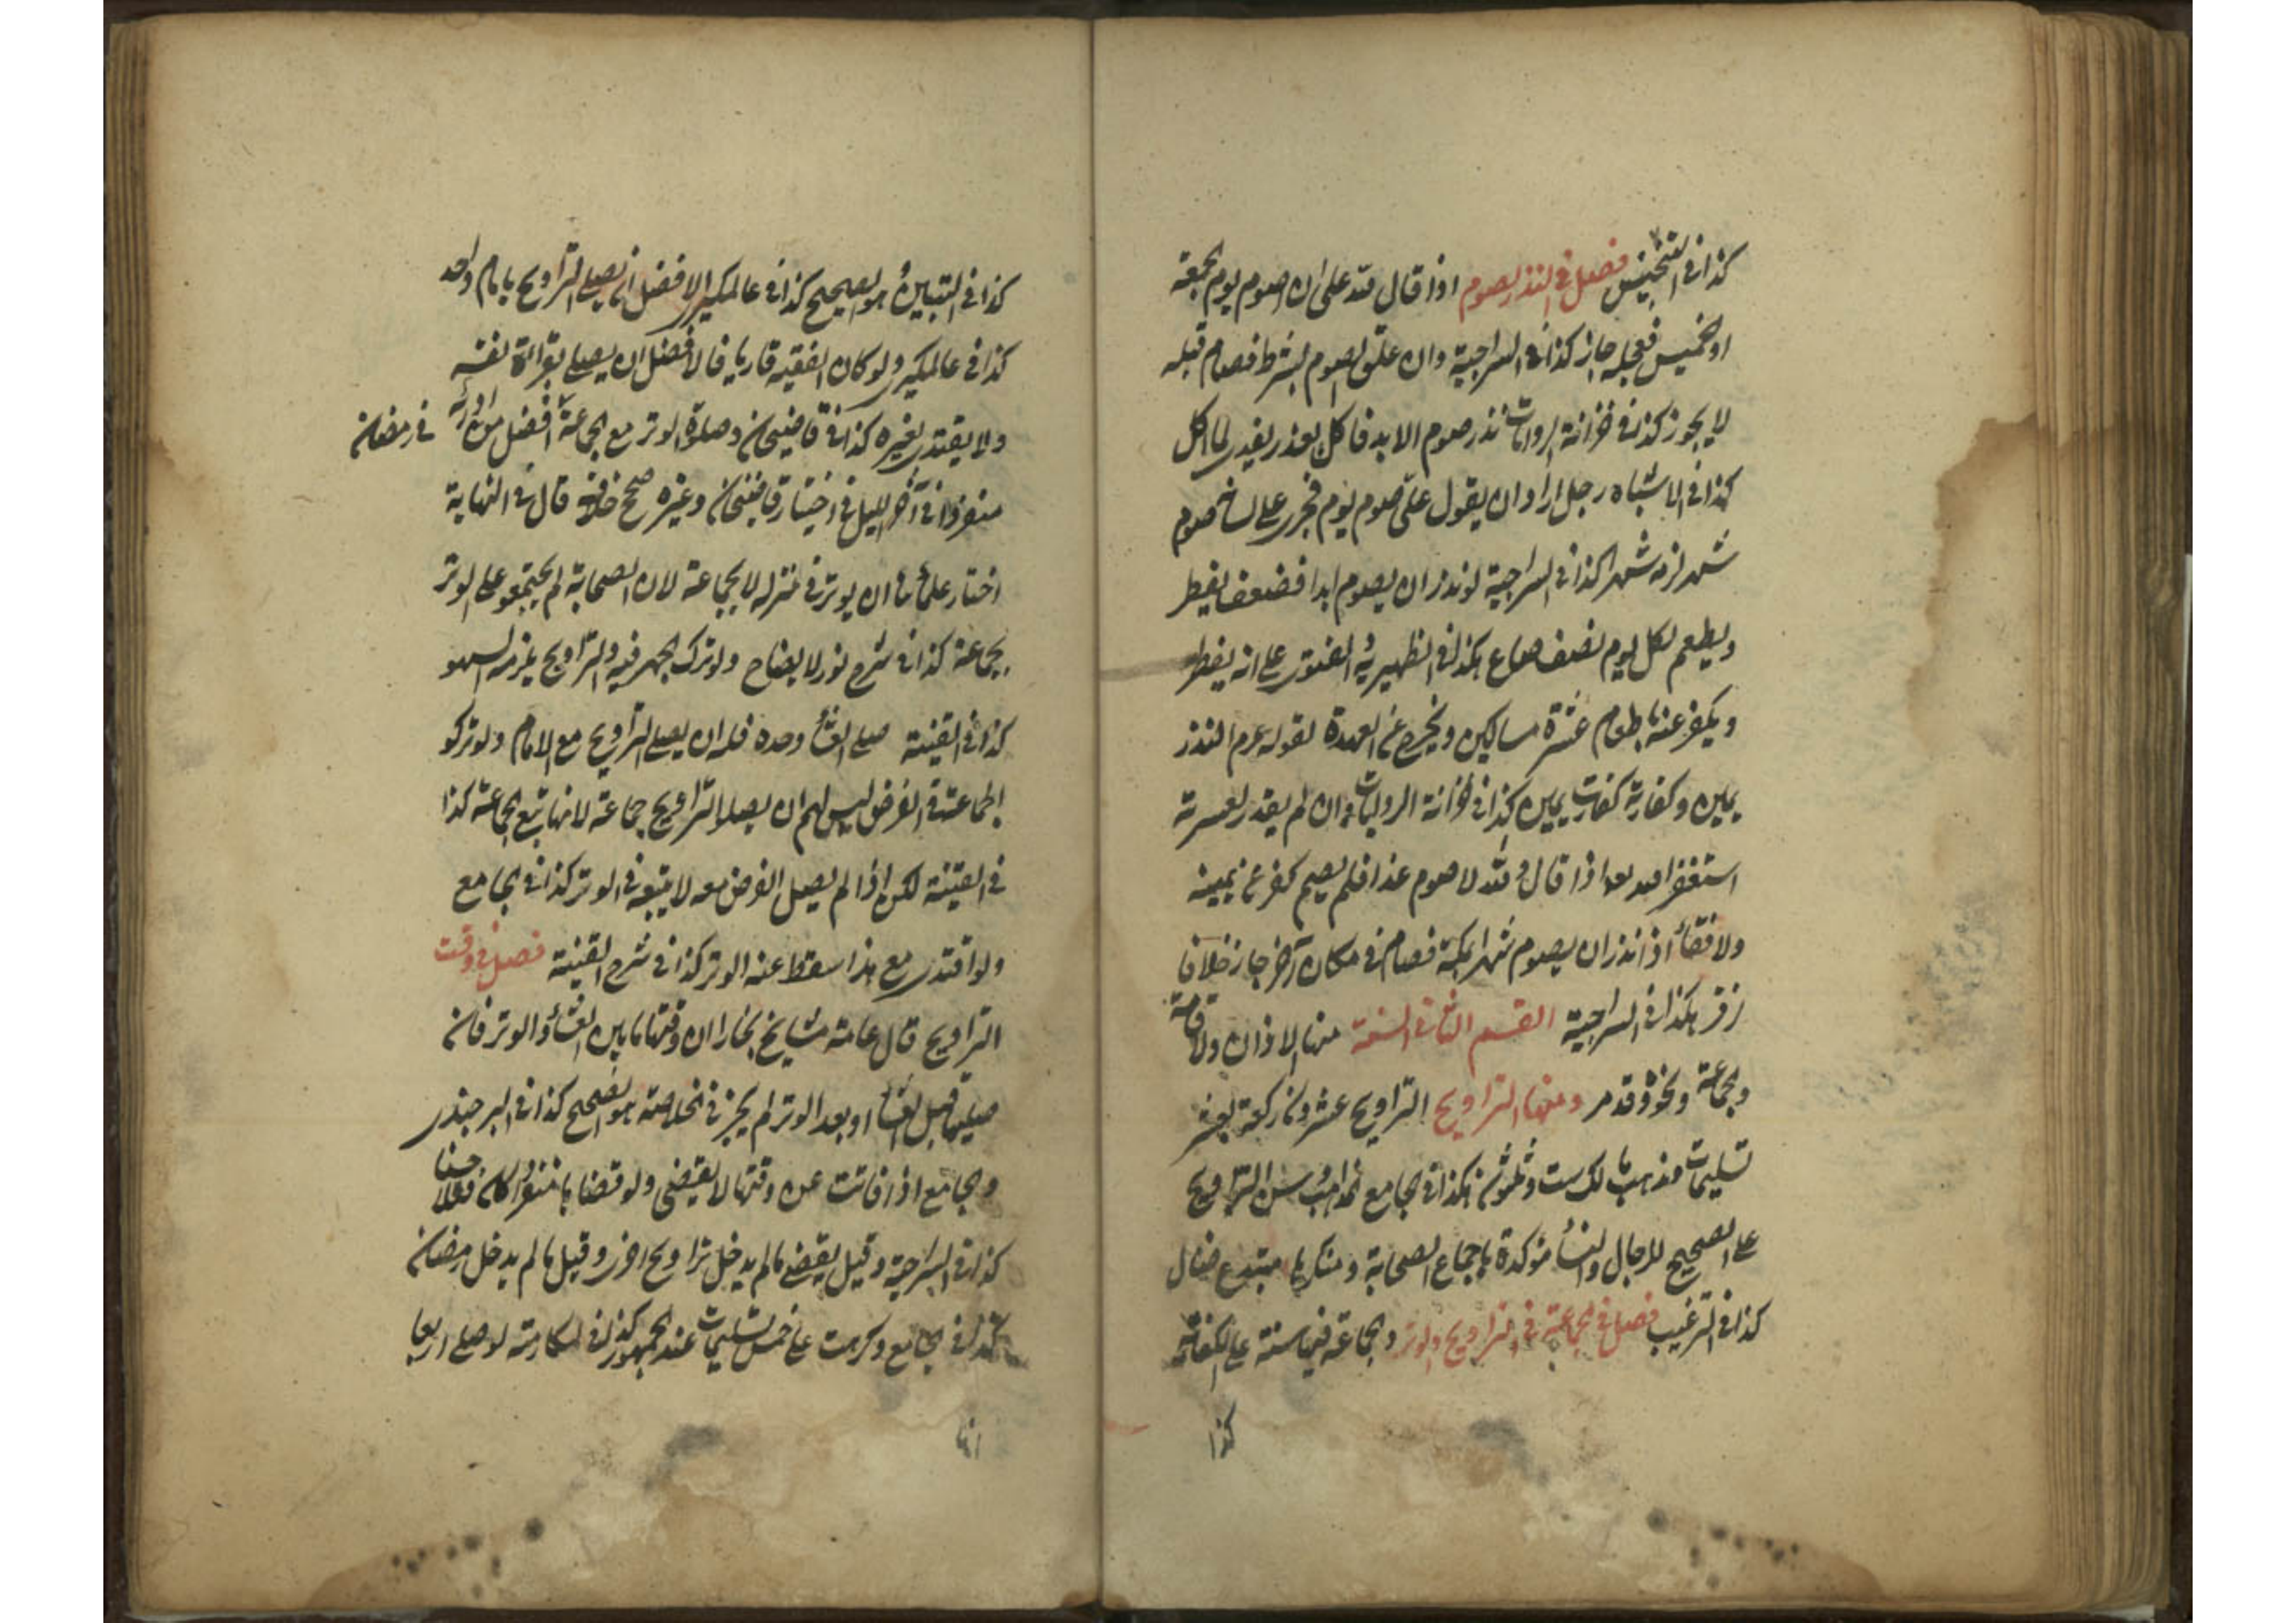 كذا فى التجنيس فصل فى النذر بالصوم اذا قال لله على ان اصوم يوم الجمعة
او الخميس فعجله جاز كذا فى السراجية وان علق الصوم بشرط فصام قبله
لا يجوز كذا فى خزانة الروايات نذر صوم الابد فاكل لعذر يفدى لما اكل
كذا فى الاشباه رجل اراد ان يقول على صوم يوم فجرى على لسانه صوم
شهر لزمه شهرا كذا فى السراجية لو نذر ان يصوم ابدا فضعف يفطر
ويطعم لكل يوم نصف صاع هكذا فى الظهيرية الفتوى على انه يفطر
ويكفر عنه باطعام عشرة مساكين ويخرج عن العهدة لقوله عم النذر
يمين وكفارته كفارة يمين كذا فى خزانة الروايات وان لم يقدر لعسرته
استغفر اذا قال والله لاصوم غدا فلم يصم كفر عن يمينه
ولا قضاء اذا نذر ان يصوم شهرا بمكة فصام فى مكان آخر جاز خلافا
زفر هكذا فى السراجية القسم الثانى السنة منها الاذان والاقامة
والجماعة ونحوه وقد مر ومنها التراويح التراويح عشرون ركعة بعشر
تسليمات ومذهب مالك ست وثلثون هكذا فى جامع المذاهب سنن التراويح
على الصحيح للرجال والنساء مؤكدة باجماع الصحابة ومنكرها مبتدع ضال
كذا فى الترغيب فصل فى الجماعة فى التراويح والوتر والجماعة فيها سنة على الكفاية
كذا
كذا فى التبيين هو الصحيح كذا فى عالمكيرى الافضل ان يصلى التراويح بامام واحد
كذا فى عالمكيرى ولو كان الفقيه قاريا فالافضل ان يصلى بقراءة نفسه
ولا يقتدى بغيره كذا فى قاضيخان وصلوة الوتر مع الجماعة افضل من ادائه فى رمضان
منفردا فى آخر الليل فى اختيار قاضيخان وغيره صحح خلافه قال فى النهاية
اختار علماؤنا ان يوتر فى منزله لا بجماعة لان الصحابة لم يجتمعوا على الوتر
بجماعة كذا فى شرح نور الايضاح ولو ترك الجهر فيه والتراويح يلزمه السهو
كذا فى القنية صلى العشاء وحده فله ان يصلى التراويح مع الامام ولو تركوا
الجماعة فى الفرض ليس لهم ان يصلوا التراويح جماعة لانها تبع الجماعة كذا
فى القنية لكن اذا لم يصل الفرض معه لا يتبعه فى الوتر كذا فى الجامع
ولو اقتدى مع هذا سقط عنه الوتر كذا فى شرح القنية فصل فى وقت
التراويح قال عامة مشايخ بخارا ان وقتها ما بين العشاء والوتر فان
صليها قبل العشاء او بعد الوتر لم يجز فى الخلاصة هو الصحيح كذا فى البرجندى
والجامع اذا فاتت عن وقتها لا يقضى ولو قضاها منفردا كان نفلا حسنا
كذا فى السراجية وقيل يقضى ما لم يدخل تراويح اخرى وقيل ما لم يدخل رمضان
كذا فى الجامع وكرهت على خمس تسليمات عند الجمهور كذا فى لو صلى اربعا